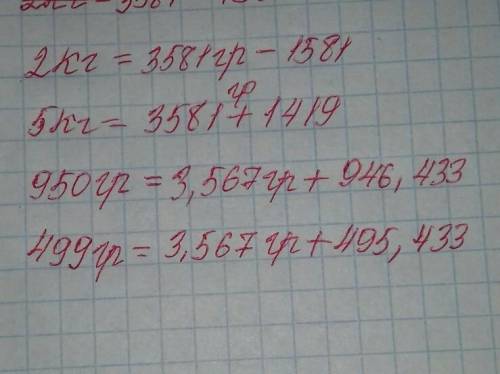 2кг = 3581гр - 1581
5кг = 3581гр + 1419
950гр = 3,567гр + 946,433
499гр = 3,567гр + 495,433